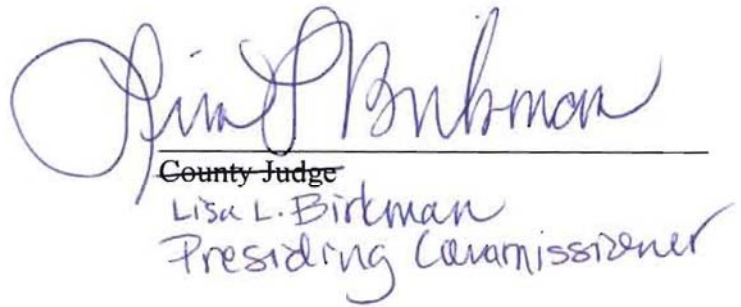 Lisa L Birkman
County Judge
Lisa L. Birkman
Presiding Commissioner